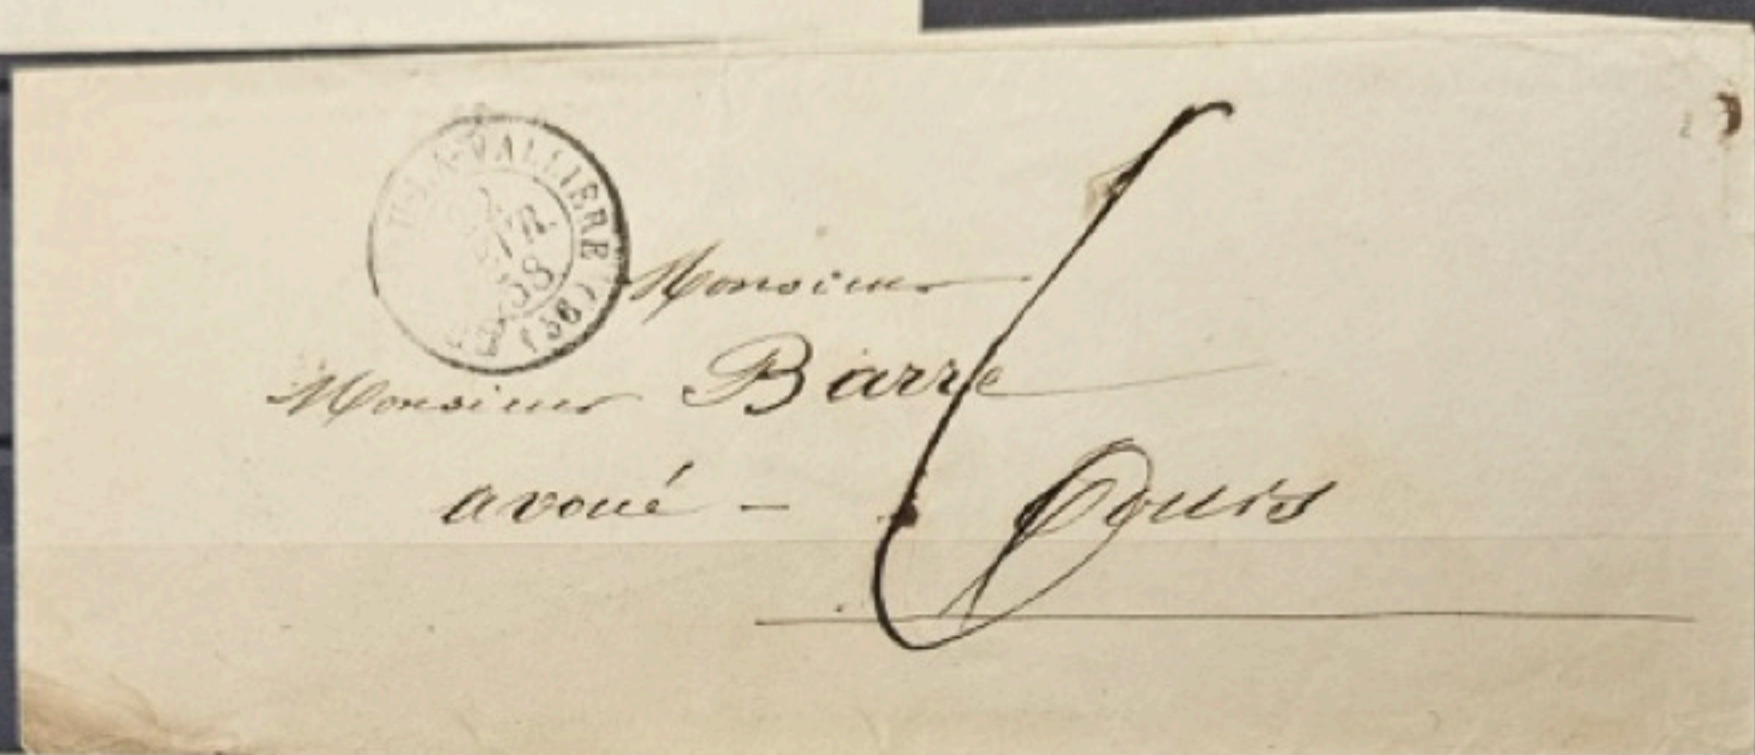 U-LA-VALLIERE (36)
AVR.
58
Monsieur
Monsieur Barre
avoué - Tours
6